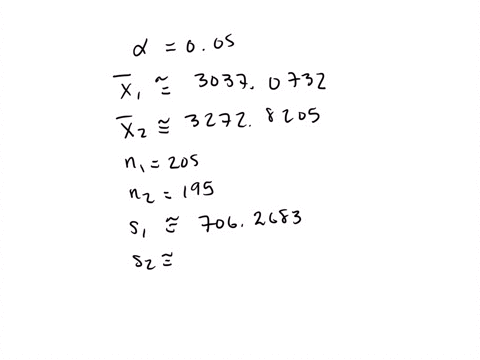 α = 0.05
X̄₁ ≅ 3037.0732
X̄₂ ≅ 3272.8205
n₁ = 205
n₂ = 195
s₁ ≅ 706.2683
s₂ ≅